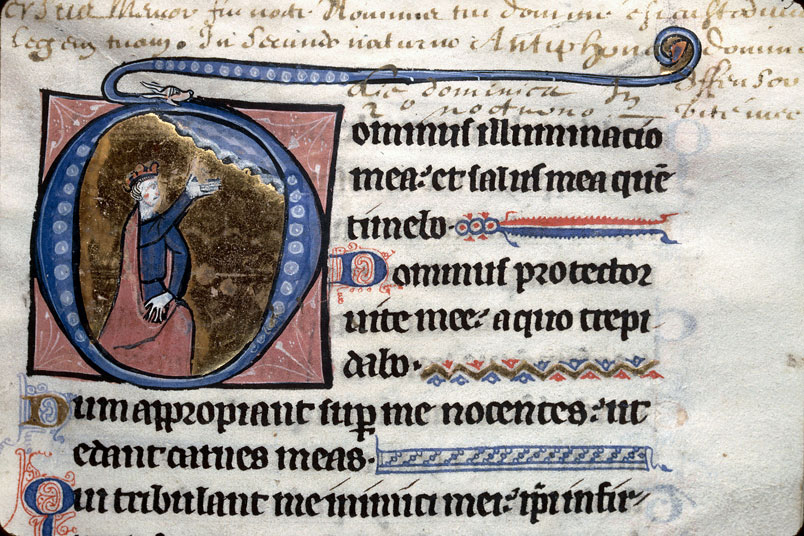 Nomine tui domine
legem tuam. In Secundo nocturno Antiphona domin
Dominus illuminacio
mea: et salus mea quē
timebo.
Dominus protector
uite mee: a quo trepi
dabo.
Dum appropiant sup me nocentes: ut
edant carnes meas.
Qui tribulant me inimici mei: ip̄i infir